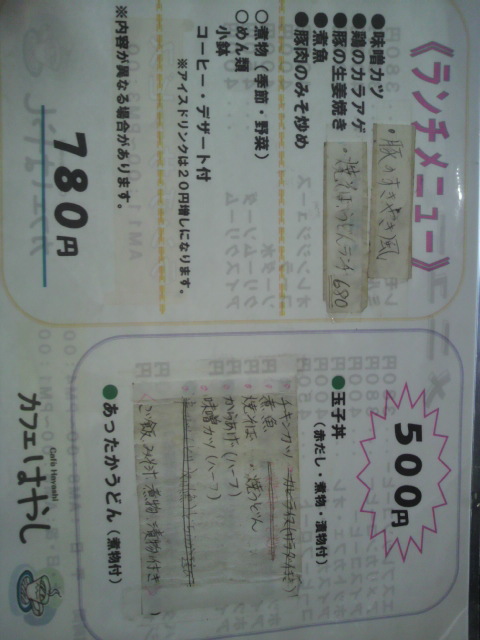 《ランチメニュー》
●味噌カツ
●鶏のカラアゲ
●豚の生姜焼き
●煮魚
●豚肉のみそ炒め
・豚のすきやき風
・焼そばうどんランチ 680
○煮物（季節・野菜）
○めん類
小鉢
コーヒー・デザート付
※アイスドリンクは20円増しになります。
※内容が異なる場合があります。
780円
500円
●玉子丼
（赤だし・煮物・漬物付）
チキンカツ
煮魚
焼そば・焼うどん
からあげ（ハーフ）
味噌カツ（ハーフ）
（ご飯 みそ汁 煮物 漬物付き）
●あったかうどん（煮物付）
Cafe Hayashi
カフェはやし